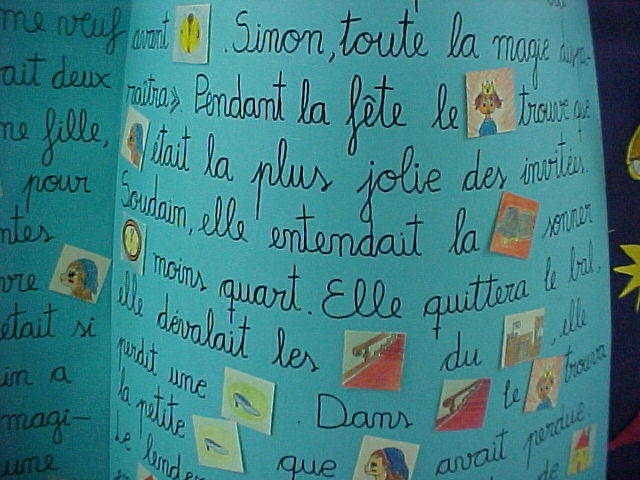 me veuf
ait deux
ne fille,
pour
ntes
vre
était si
in a
magi-
une
avant . Sinon, toute la magie dispa-
raîtra». Pendant la fête le trouve que
était la plus jolie des invitées.
Soudain, elle entendait la sonner
moins quart. Elle quittera le bal,
elle dévalait les du , elle
perdit une . Dans le trouva
la petite que avait perdue.
Le de